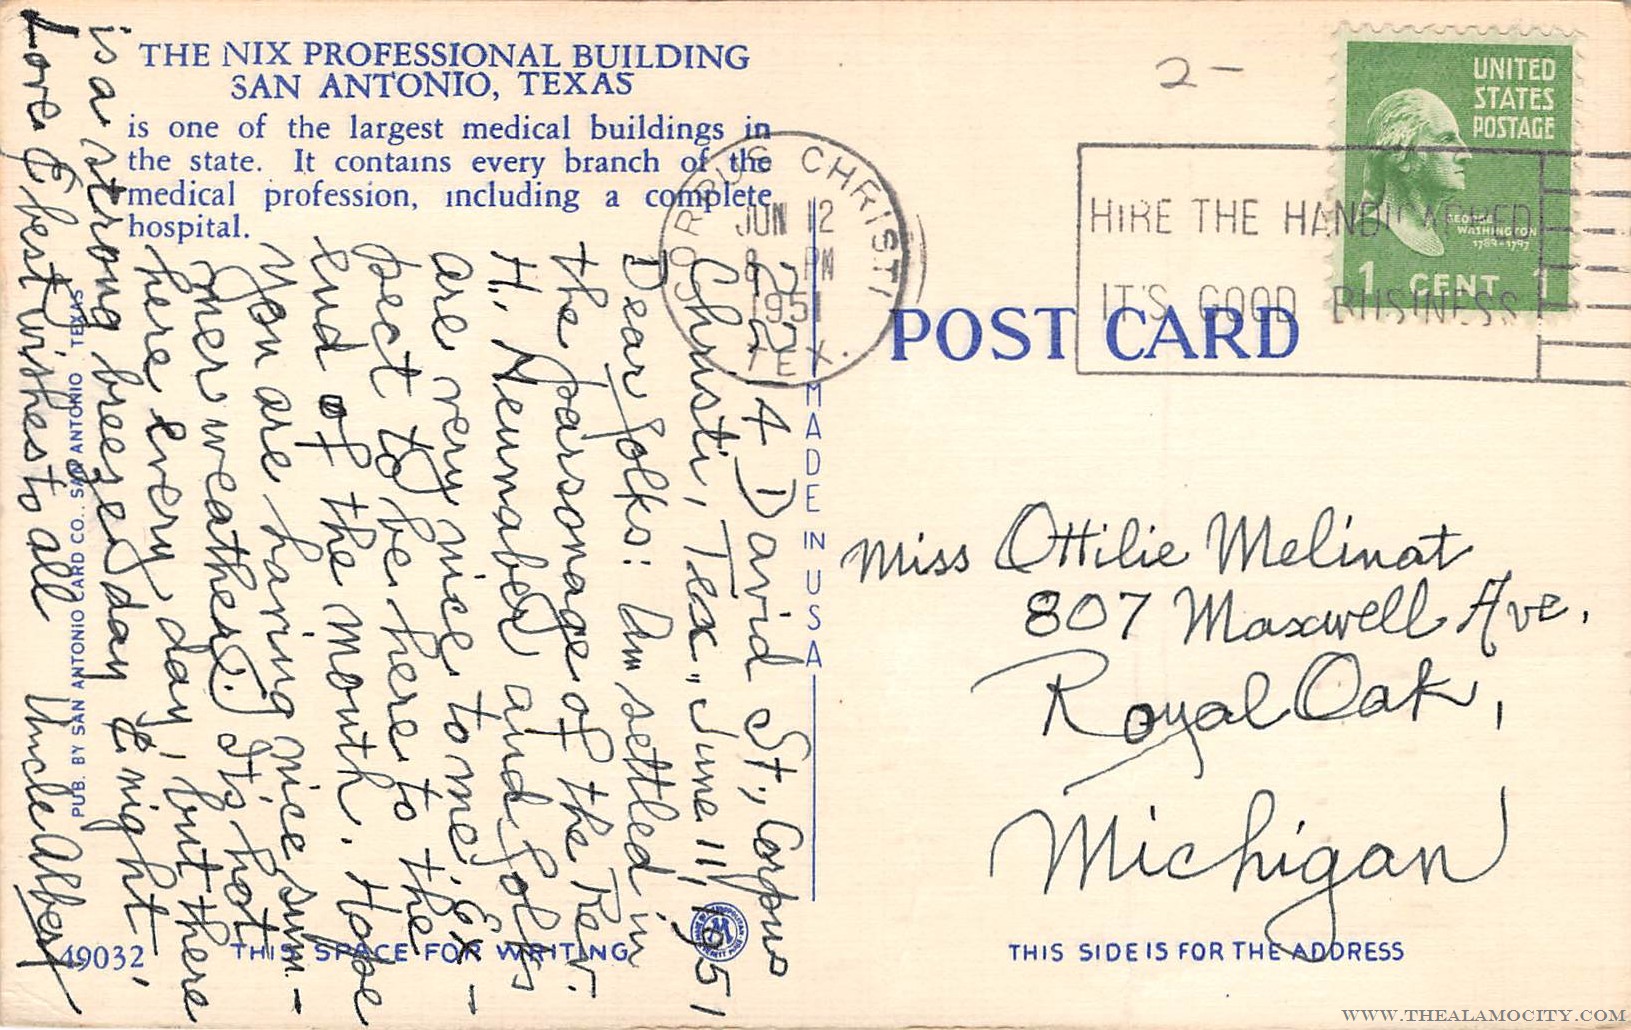 THE NIX PROFESSIONAL BUILDING
SAN ANTONIO, TEXAS
is one of the largest medical buildings in
the state. It contains every branch of the
medical profession, including a complete
hospital.
2214 David St., Corpus
Christi, Tex., June 11, 1951
Dear folks: Am settled in
the parsonage of the Rev.
H. Neunaber and folks
are very nice to me. Ex-
pect to be here to the
end of the month. Hope
you are having nice sum-
mer weather. It's hot
here every day, but there
is a strong breeze day & night.
Love & best wishes to all Uncle Albert
PUB. BY SAN ANTONIO CARD CO., SAN ANTONIO, TEXAS
49032
THIS SPACE FOR WRITING
MADE IN USA
CORPUS CHRISTI,
JUN 12
8 PM
1951
TEX.
2-
HIRE THE HANDICAPPED
IT'S GOOD BUSINESS
UNITED
STATES
POSTAGE
GEORGE
WASHINGTON
1789-1797
1 CENT 1
POST CARD
Miss Ottilie Melinat
807 Maxwell Ave.
Royal Oak,
Michigan
THIS SIDE IS FOR THE ADDRESS
WWW.THEALAMOCITY.COM